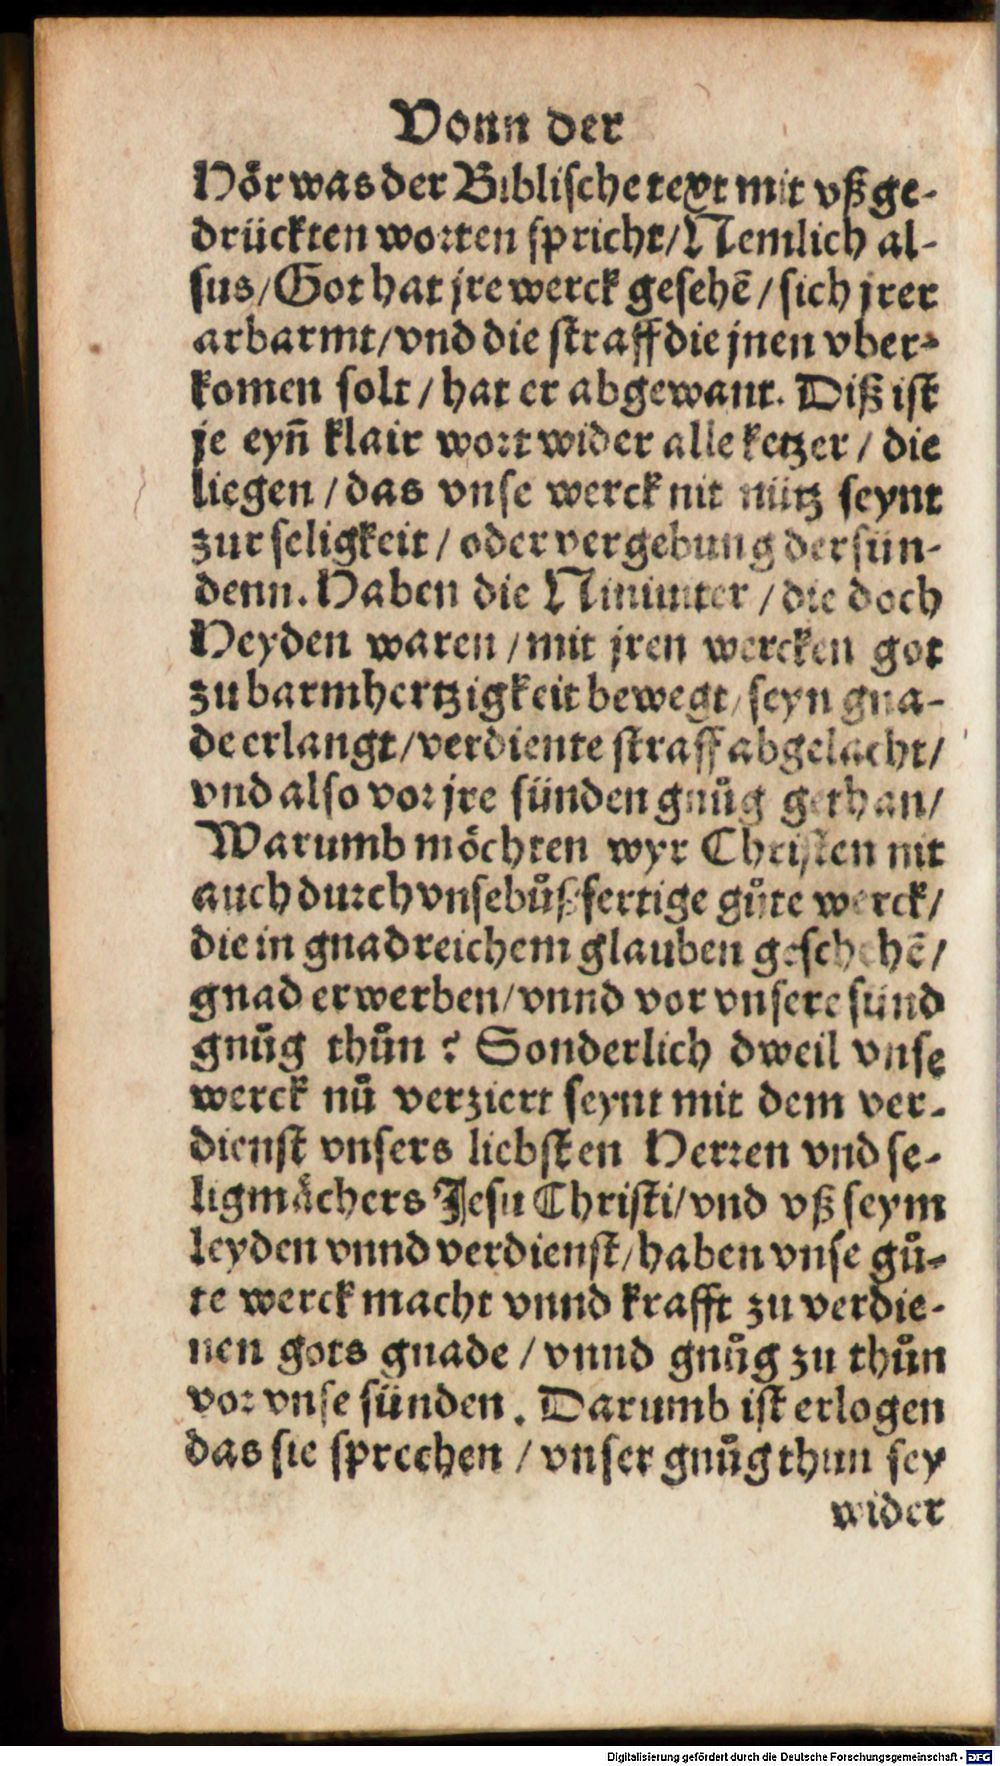 Vonn der
Hoͤr was der Biblische text mit vßge-
drückten worten spricht/ Nemlich al-
sus/ Got hat jre werck gesehē/ sich jrer
arbarmt/ vnd die straff die jnen vber-
komen solt/ hat er abgewant. Diß ist
je eyn̄ klair wort wider alle ketzer/ die
liegen/ das vnse werck nit nütz seynt
zur seligkeit/ oder vergebung der sün-
denn. Haben die Niniuiter/ die doch
Heyden waren/ mit jren wercken got
zu barmhertzigkeit bewegt/ seyn gna-
de erlangt/ verdiente straff abgelacht/
vnd also vor jre sünden gnůg gethan/
Warumb möchten wyr Christen nit
auch durch vnse bůßfertige gůte werck/
die in gnadreichem glauben geschehē/
gnad erwerben/ vnnd vor vnsere sünd
gnůg thůn? Sonderlich dweil vnse
werck nů verziert seynt mit dem ver-
dienst vnsers liebsten Herren vnd se-
ligmächers Jesu Christi/ vnd vß seym
leyden vnnd verdienst/ haben vnse gů-
te werck macht vnnd krafft zu verdie-
nen gots gnade/ vnnd gnůg zu thůn
vor vnse sünden. Darumb ist erlogen
das sie sprechen/ vnser gnůgthun sey
wider
Digitalisierung gefördert durch die Deutsche Forschungsgemeinschaft - DFG